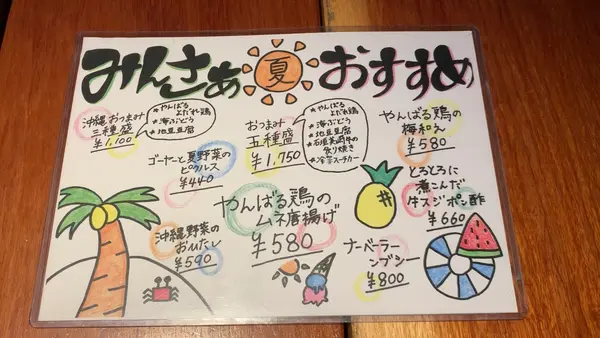 みんさあ 夏 おすすめ
沖縄おつまみ
三種盛
¥1,100
★やんばる
よだれ鶏
★海ぶどう
★地豆豆腐
おつまみ
五種盛
¥1,750
★やんばる
よだれ鶏
★海ぶどう
★地豆豆腐
★石垣美崎牛の
炙り焼き
★冷製スーチカー
やんばる鶏の
梅和え
¥580
ゴーヤーと夏野菜の
ピクルス
¥440
とろとろに
煮こんだ
牛スジポン酢
¥660
やんばる鶏の
ムネ唐揚げ
¥580
沖縄野菜の
おひたし
¥590
ナーベーラー
ンブシー
¥800